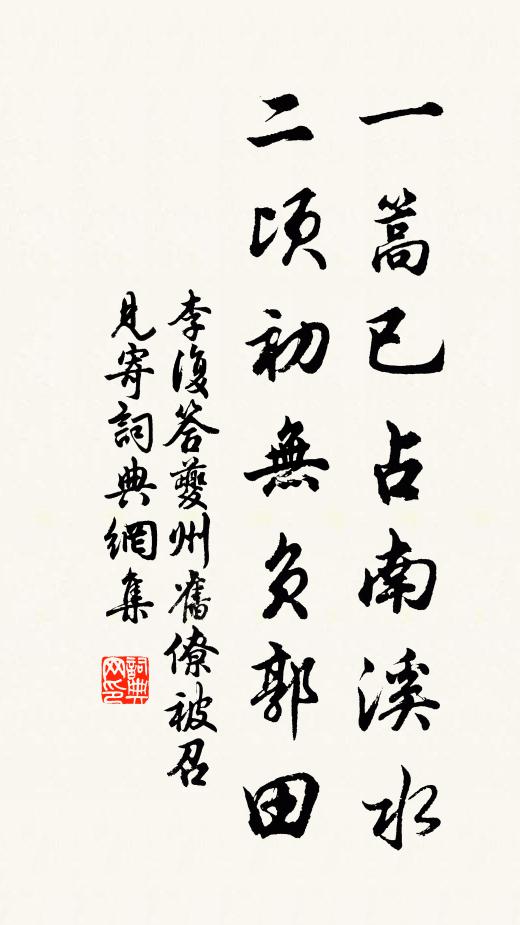 一篙已占南溪水
二頃初無負郭田
李復答夔州舊僚被召
見寄詞典網集
詞典
网印